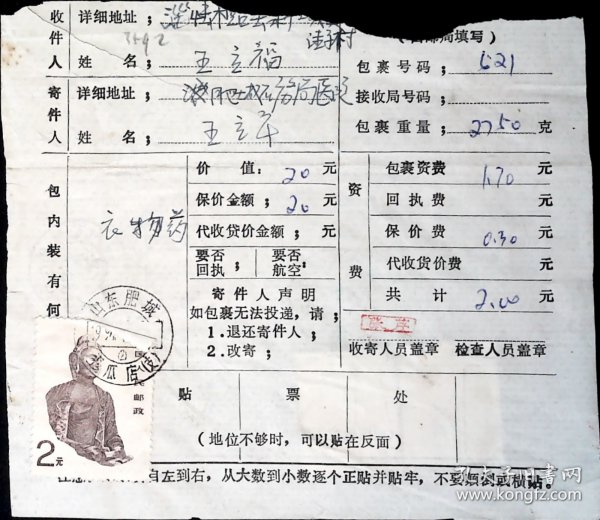 收件人
详细地址；
3492
姓名；王立福
寄件人
详细地址；
姓名；王立军
（由邮局填写）
包裹号码；621
接收局号码；
包裹重量；2750克
包内装有何
衣物药
价值：20元
保价金额；20元
代收贷价金额；元
要否回执；
要否航空；
寄件人声明
如包裹无法投递，请；
1.退还寄件人；
2.改寄；
资费
包裹资费 1.70 元
回执费 元
保价费 0.30 元
代收货价费 元
共计 2.00 元
收寄人员盖章 检查人员盖章
山东肥城
贴票处
（地位不够时，可以贴在反面）
自左到右，从大数到小数逐个正贴并贴牢，不要颠倒或横贴。
邮政
2元
孔夫子旧书网
www.kongfz.com